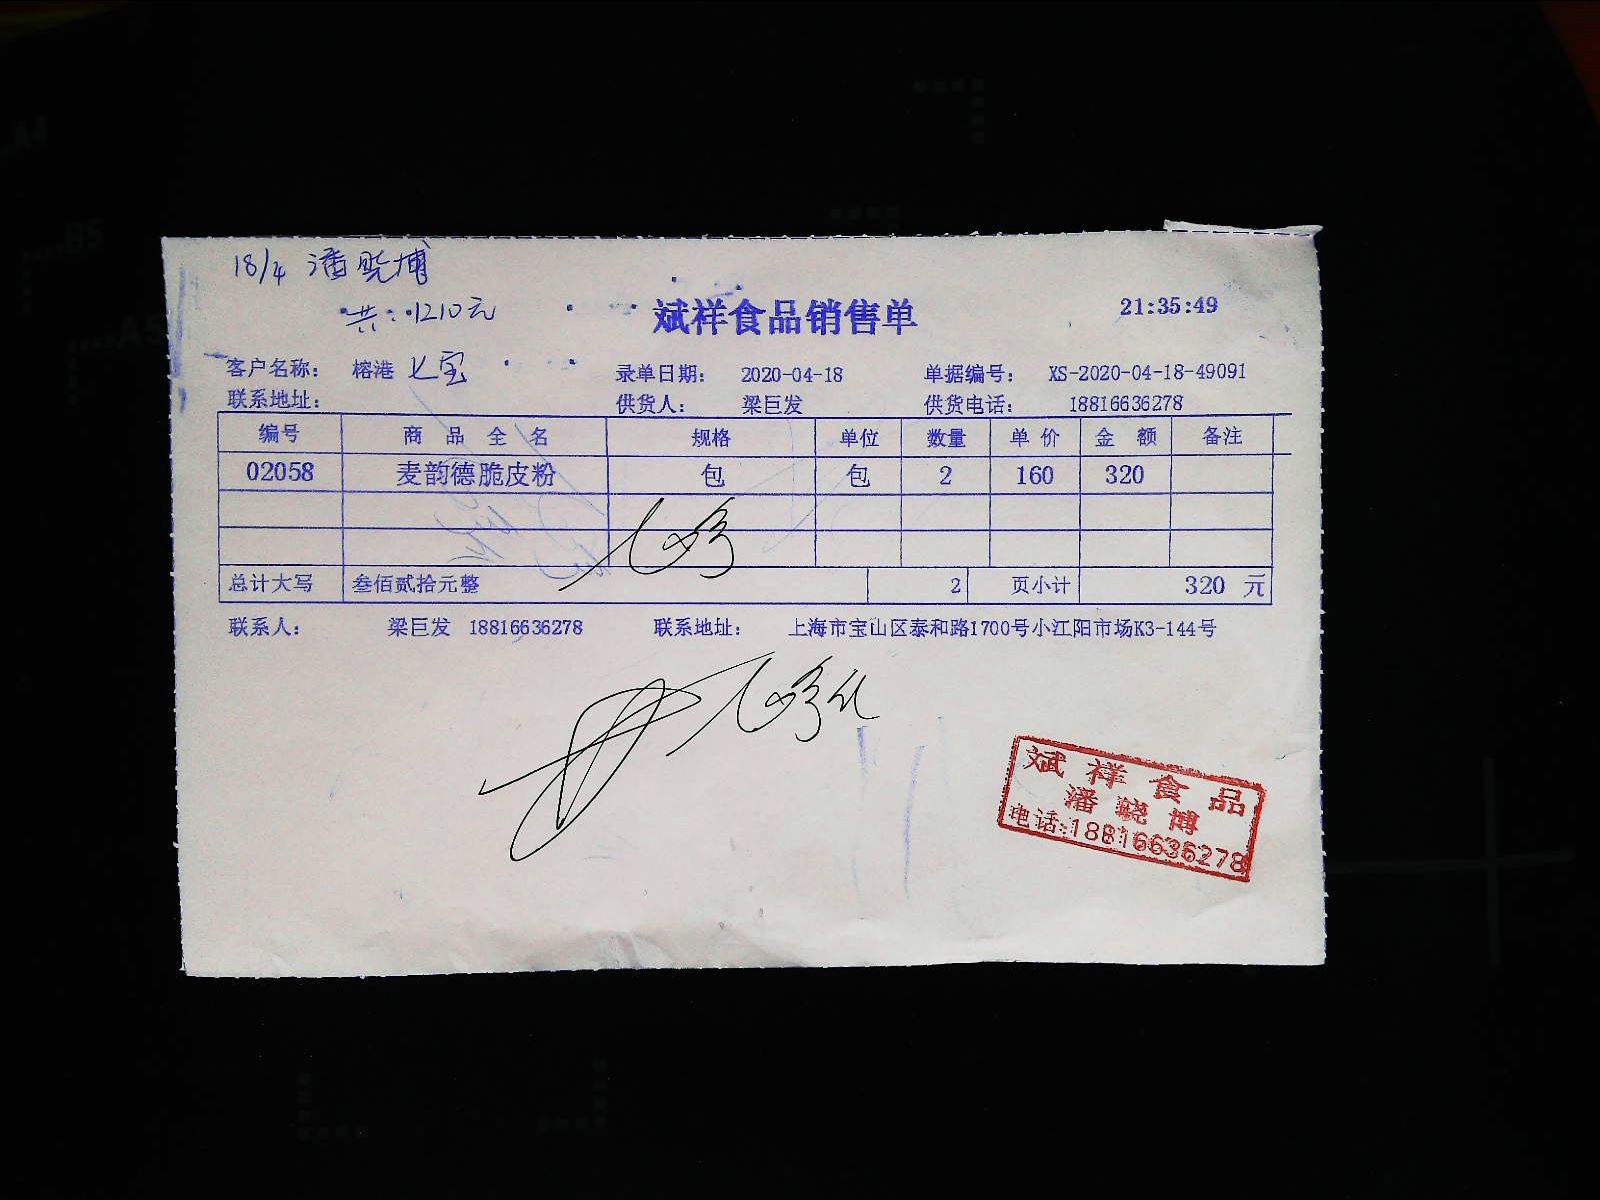 18/4 潘晓博
共:1210元
斌祥食品销售单 21:35:49
客户名称: 榕港 七宝 录单日期: 2020-04-18 单据编号: XS-2020-04-18-49091
联系地址: 供货人: 梁巨发 供货电话: 18816636278
编号 商品全名 规格 单位 数量 单价 金额 备注
02058 麦韵德脆皮粉 包 包 2 160 320
总计大写 叁佰贰拾元整 2 页小计 320 元
联系人: 梁巨发 18816636278 联系地址: 上海市宝山区泰和路1700号小江阳市场K3-144号
斌祥食品
潘晓博
电话:18816636278